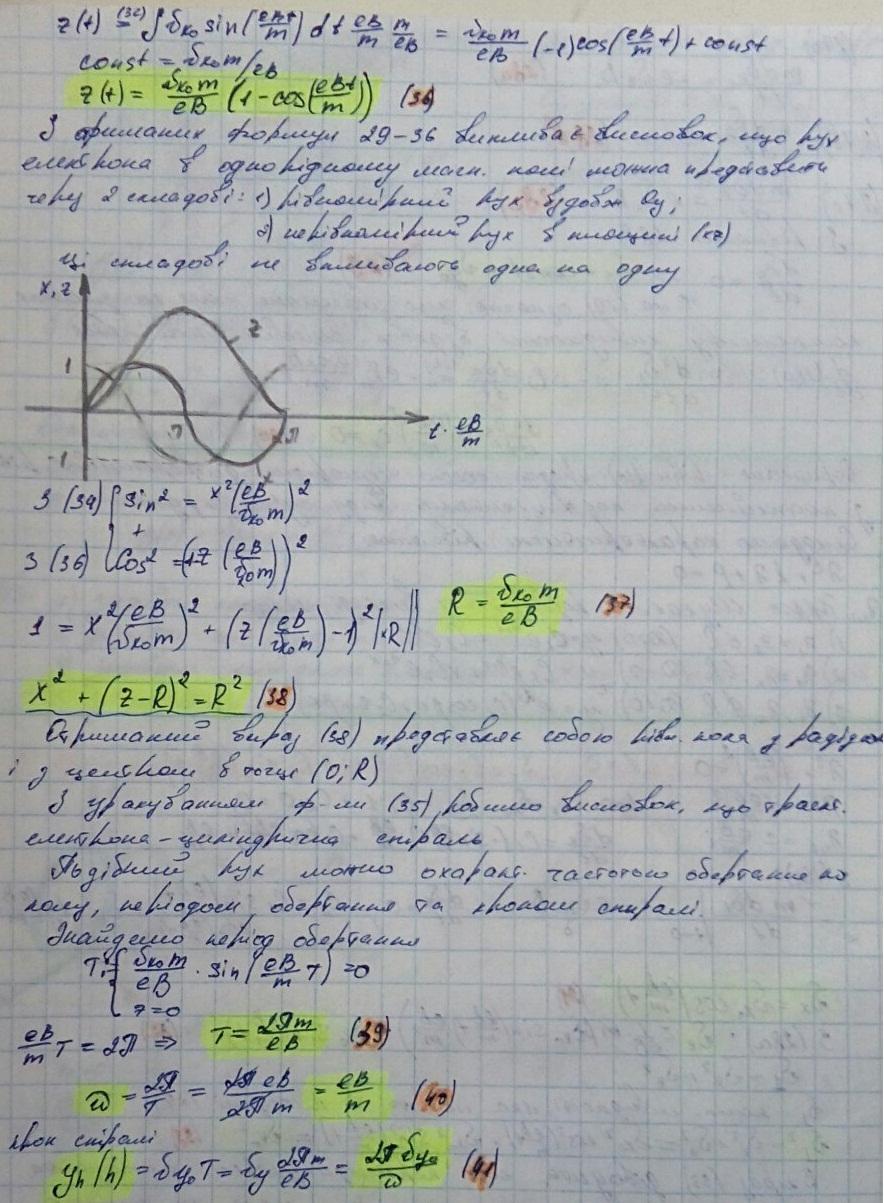 z(t) (32)= ∫ v_x₀ sin(eBt/m) dt eB/m m/eB = v_x₀m/eB (-1)cos(eB/m t) + const
const = v_x₀m/eB
z(t) = v_x₀m/eB (1-cos(eBt/m)) (36)
З отриманих формул 29-36 випливає висновок, що рух
електрона в однорідному магн. полі можна представити
через 2 складові: 1) рівномірний рух вздовж Oy;
2) нерівномірний рух в площині (xz)
Ці складові не впливають одна на одну
x, z
z
1
π
2π
t · eB/m
-1
x
З (34) { sin² = x²(eB/v_x₀m)²
+
З (36) { cos² = (1-z(eB/v_x₀m))²
1 = x²(eB/v_x₀m)² + (z(eB/v_x₀m)-1)² |×R|| R = v_x₀m/eB (37)
x² + (z-R)² = R² (38)
Отриманий вираз (38) представляє собою рівн. кола з радіусом
і з центром в точці (0; R)
З урахуванням ф-ли (35) робимо висновок, що траєкт.
електрона - циліндрична спіраль
Подібний рух можно охаракт. частотою обертання по
колу, періодом обертання та кроком спіралі.
Знайдемо період обертання
T: { v_x₀m/eB · sin(eB/m T) = 0
z = 0
eB/m T = 2π ⇒ T = 2πm/eB (39)
ω = 2π/T = 2π eB/2π m = eB/m (40)
крок спіралі
yh(h) = v_y₀T = v_y 2πm/eB = 2π v_y₀/ω (41)